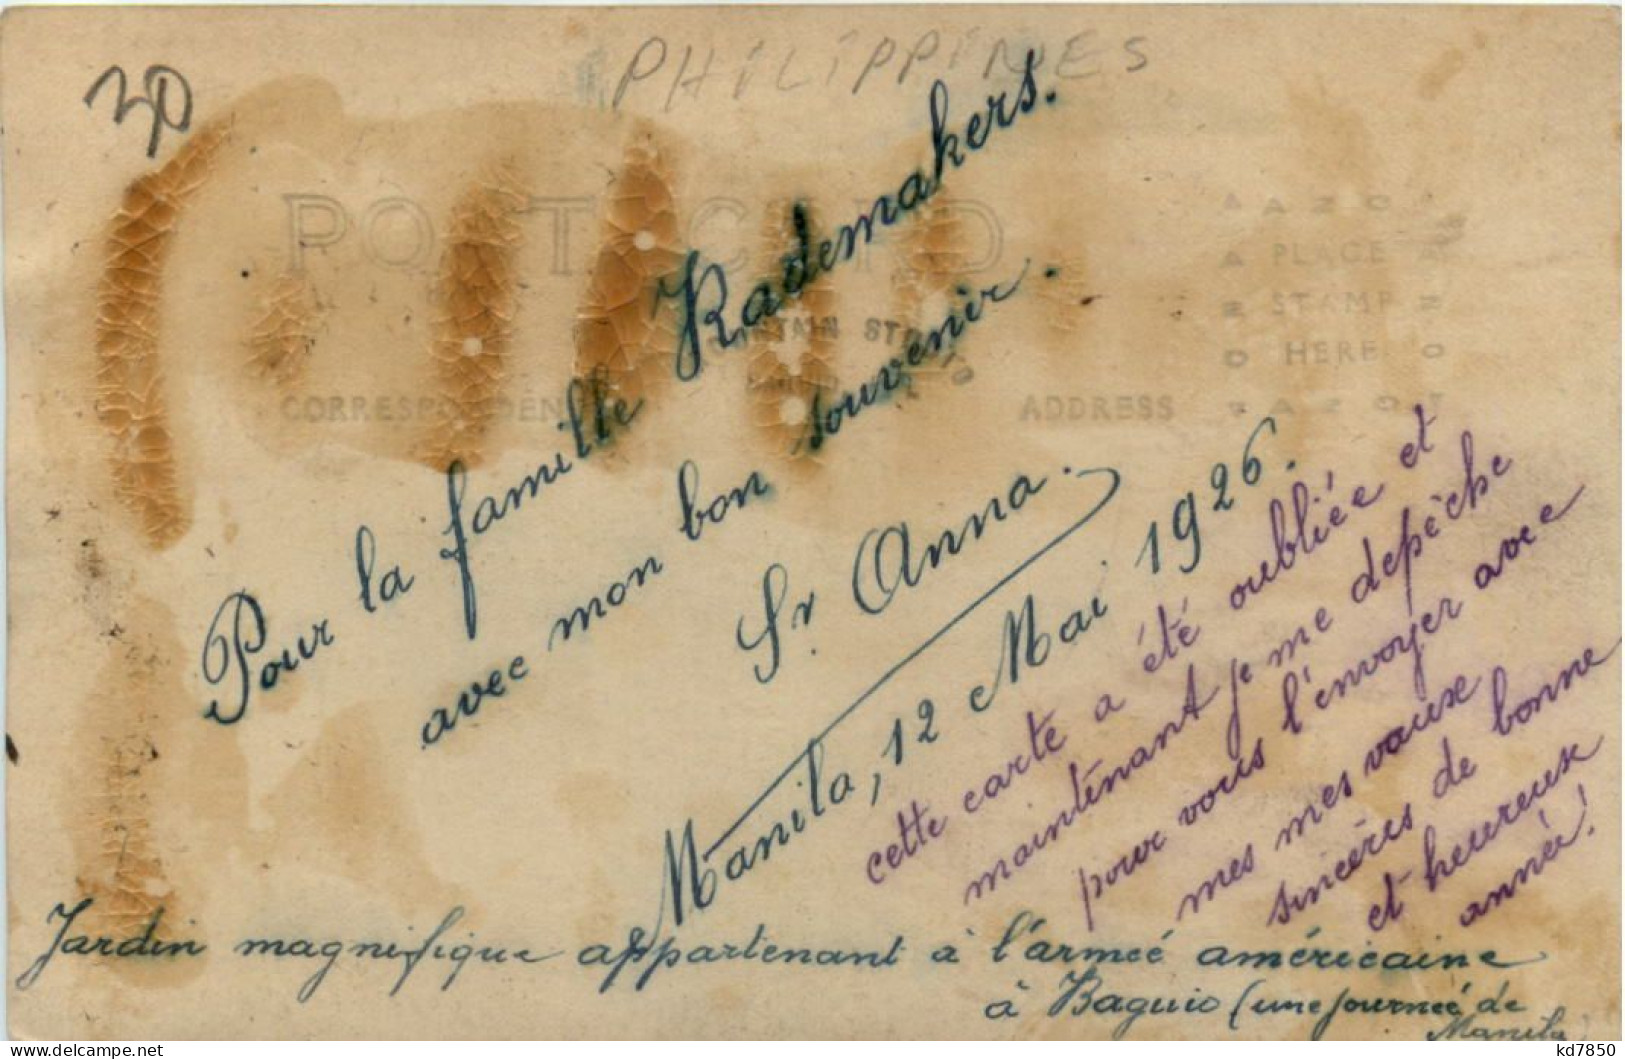 PHILIPPINES
POST CARD
CORRESPONDENCE
ADDRESS
AZO
PLACE
STAMP
HERE
AZO
Pour la famille Rademakers.
avec mon bon souvenir.
Sr Anna.
Manila, 12 Mai 1926.
cette carte a été oubliée et
maintenant je me depèche
pour vous l'envoyer avec
mes mes vaux
sincères de bonne
et heureuse
année!
Jardin magnifique appartenant à l'armée américaine
à Baguio (une journée de
Manila)
kd7850